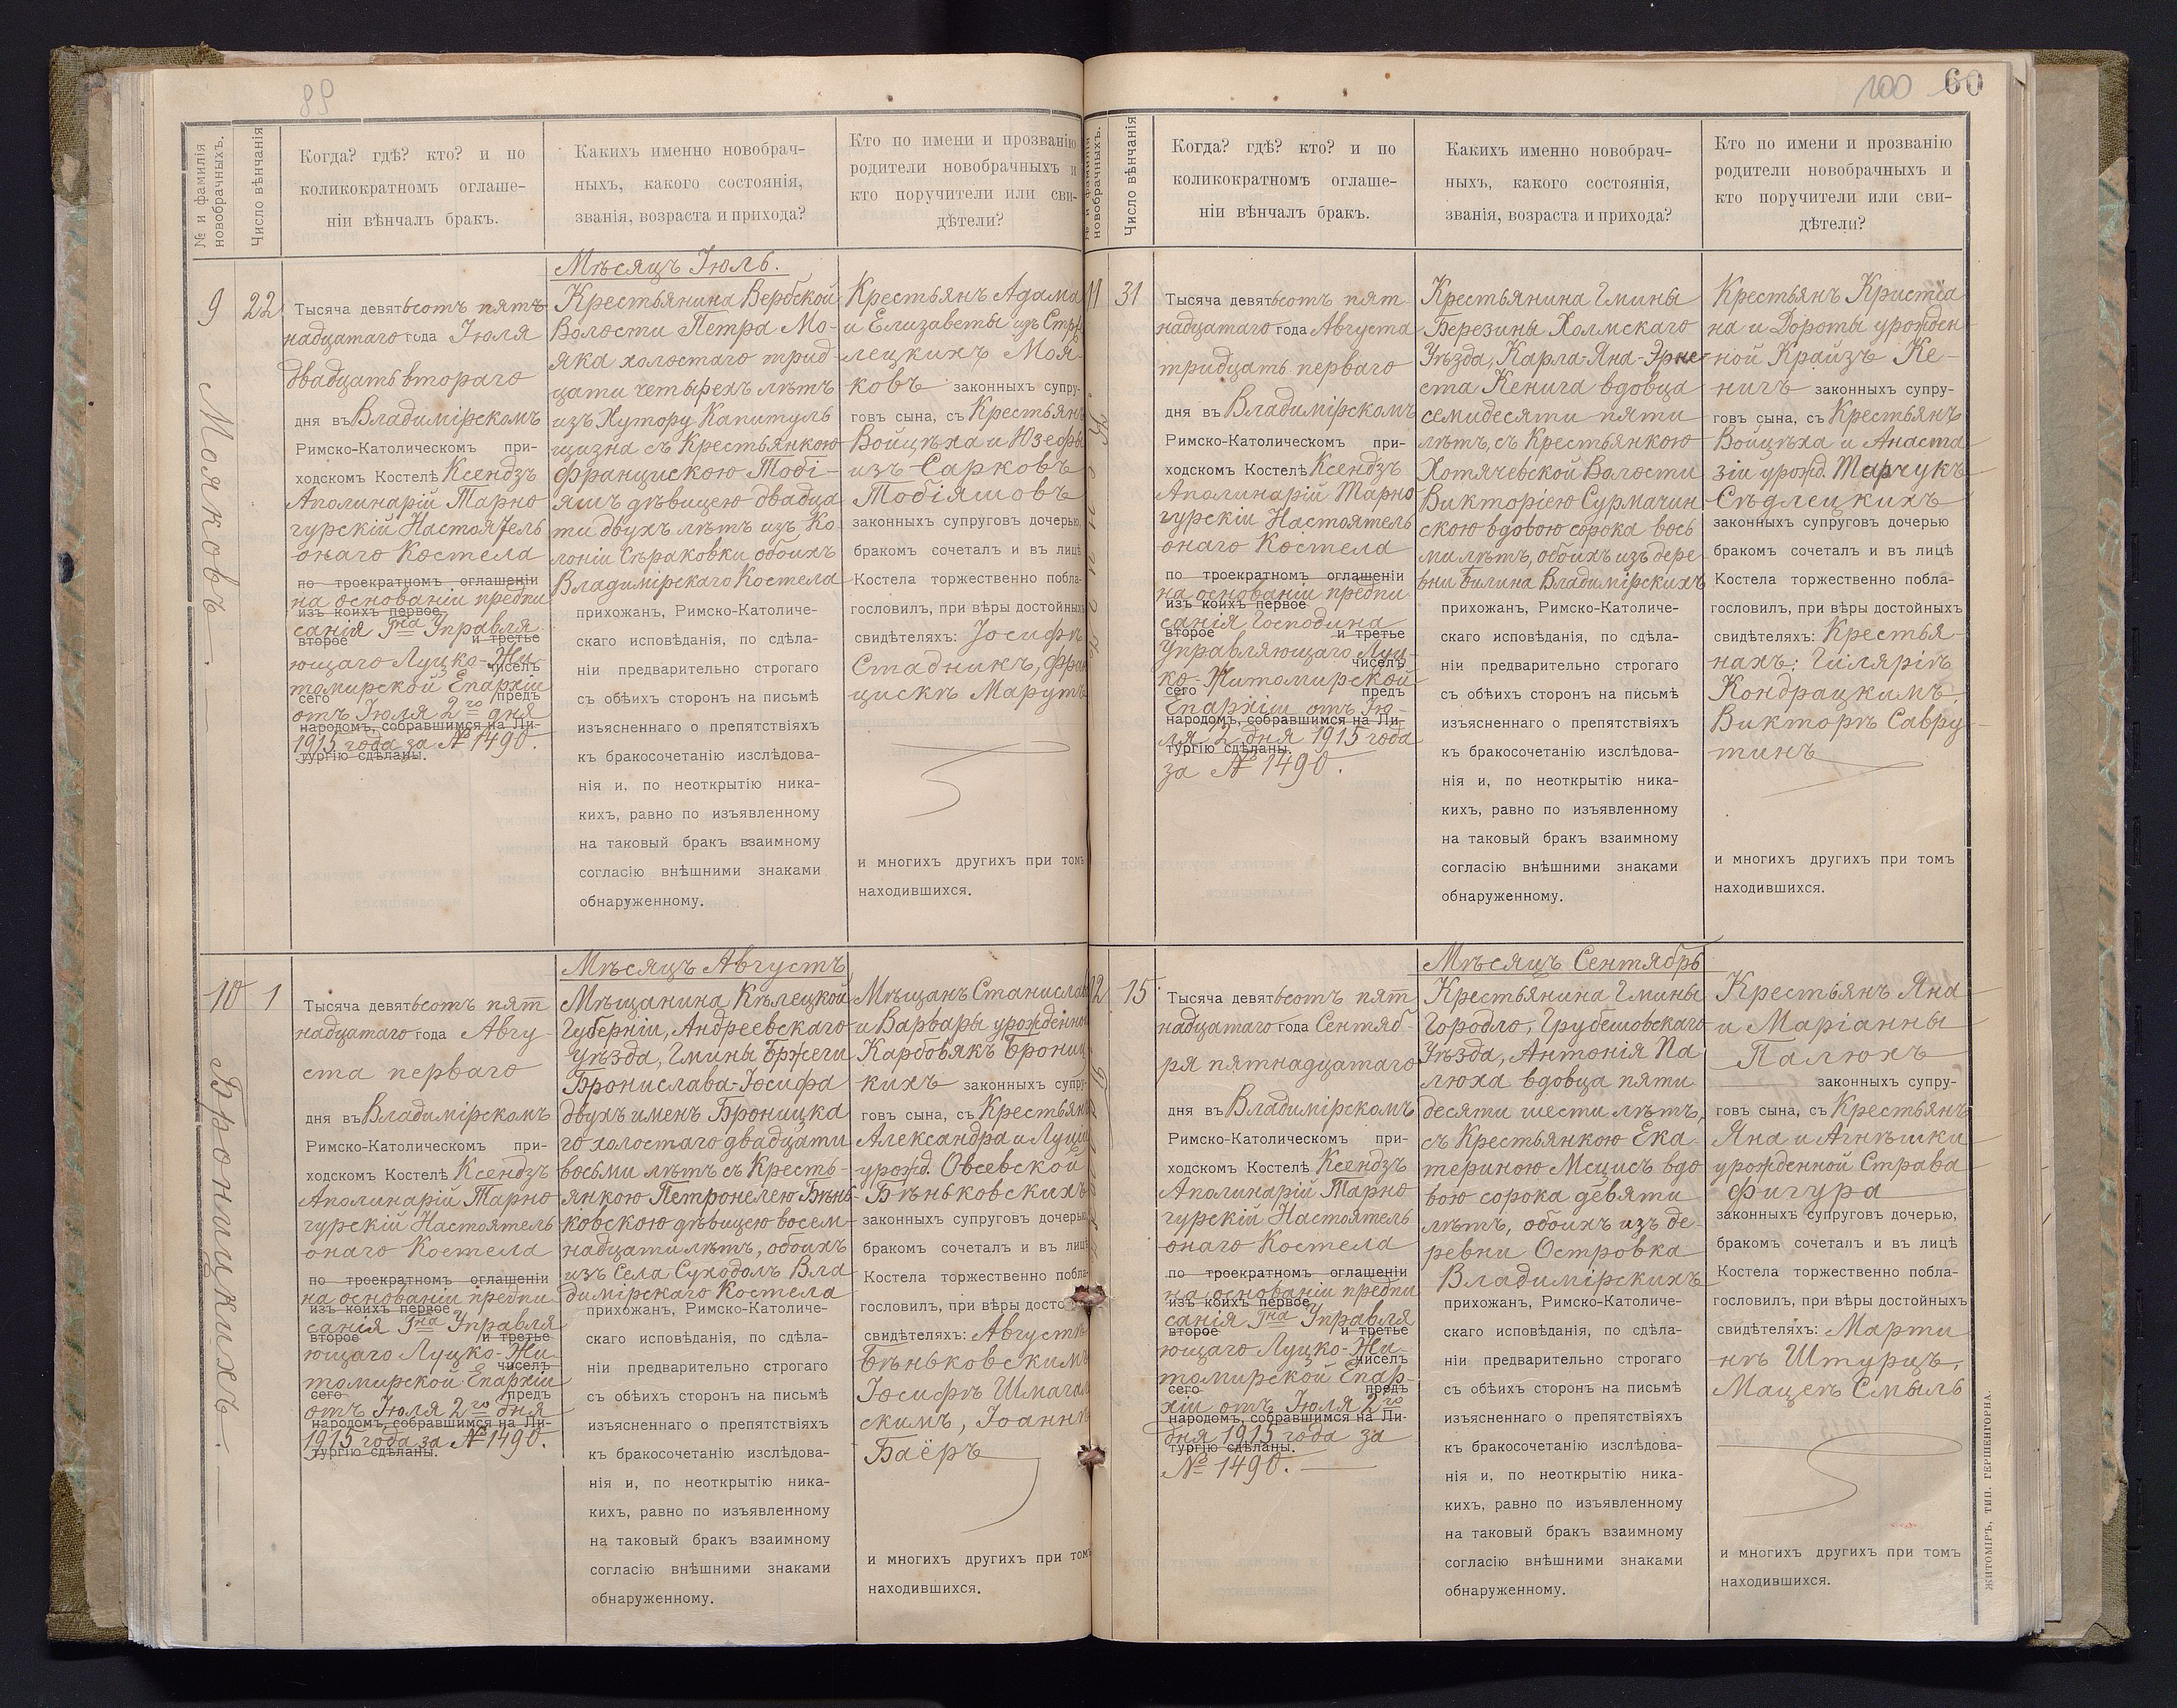 89
№ и фамилія
новобрачныхъ.
Число вѣнчанія
Когда? гдѣ? кто? и по
коликократномъ оглаше-
ніи вѣнчалъ бракъ.
Какихъ именно новобрач-
ныхъ, какого состоянія,
званія, возраста и прихода?
Кто по имени и прозванію
родители новобрачныхъ и
кто поручители или сви-
дѣтели?
9
22
Мояковъ.
Тысяча девятьсотъ пят-
надцатаго года Іюля
двадцать втораго
дня въ Владимірскомъ
Римско-Католическомъ при-
ходскомъ Костелѣ Ксендзъ
Аполинарій Тарно
гурскій Настоятель
онаго Костела
по троекратномъ оглашеніи
на основаніи предпи
изъ коихъ первое
санія Гна Управля
второе и третье
ющаго Луцко-Жи
чиселъ
томирской Епархіи
сего предъ
отъ Іюля 2го дня
народомъ, собравшимся на Ли-
1915 года за № 1490.
тургію сдѣланы.
Мѣсяцъ Іюль.
Крестьянина Вербской
Волости Петра Мо-
яка холостаго трид
цати четырехъ лѣтъ
изъ Хутору Капитуль
щизна съ Крестьянкою
Францискою Тобі-
яшъ дѣвицею двадца
ти двухъ лѣтъ изъ Ко
лоніи Сѣраковки обоихъ
Владимірскаго Костела
прихожанъ, Римско-Католиче-
скаго исповѣданія, по сдѣла-
ніи предварительно строгаго
съ обѣихъ сторонъ на письмѣ
изъясненнаго о препятствіяхъ
къ бракосочетанію изслѣдова-
нія и, по неоткрытію ника-
кихъ, равно по изъявленному
на таковый бракъ взаимному
согласію внѣшними знаками
обнаруженному.
Крестьянъ Адама
и Елизаветы изъ Стрѣ
лецкихъ Моя-
ковъ законныхъ супру-
говъ сына, съ Крестьянъ
Войцѣха и Юзефы
изъ Сарковъ
Тобіяшовъ
законныхъ супруговъ дочерью,
бракомъ сочеталъ и въ лицѣ
Костела торжественно побла-
гословилъ, при вѣры достойныхъ
свидѣтеляхъ: Іосифѣ
Стадникъ, Фран
цискѣ Марутъ
и многихъ другихъ при томъ
находившихся.
10
1
Броницкихъ.
Тысяча девятьсотъ пят
надцатаго года Авгу
ста перваго
дня въ Владимірскомъ
Римско-Католическомъ при-
ходскомъ Костелѣ Ксендзъ
Аполинарій Тарно
гурскій Настоятель
онаго Костела
по троекратномъ оглашеніи
на основаніи предпи
изъ коихъ первое
санія Гна Управля
второе и третье
ющаго Луцко-Жи
чиселъ
томирской Епархіи
сего предъ
отъ Іюля 2го дня
народомъ, собравшимся на Ли-
1915 года за № 1490.
тургію сдѣланы.
Мѣсяцъ Августъ
Мѣщанина Кѣлецкой
Губерніи, Андреевскаго
Уѣзда, Гмины Бржеги
Бронислава-Іосифа
двухъ именъ Броницка
го холостаго двадцати
восьми лѣтъ съ Кресть-
янкою Петронелею Бѣнь-
ковскою дѣвицею восем-
надцати лѣтъ, обоихъ
изъ Села Суходолъ Вла
димірскаго Костела
прихожанъ, Римско-Католиче-
скаго исповѣданія, по сдѣла-
ніи предварительно строгаго
съ обѣихъ сторонъ на письмѣ
изъясненнаго о препятствіяхъ
къ бракосочетанію изслѣдова-
нія и, по неоткрытію ника-
кихъ, равно по изъявленному
на таковый бракъ взаимному
согласію внѣшними знаками
обнаруженному.
Мѣщанъ Станислава
и Варвары урожденной
Карбовякъ Брониц
кихъ законныхъ супру-
говъ сына, съ Крестьянъ
Александра и Луціи
урожд. Овсевской
Бѣньковскихъ
законныхъ супруговъ дочерью
бракомъ сочеталъ и въ лицѣ
Костела торжественно побла-
гословилъ, при вѣры досто
свидѣтеляхъ: Августѣ
Бѣньковскимъ
Іосифѣ Шмагаль
скимъ, Іоаннѣ
Баёръ
и многихъ другихъ при томъ
находившихся.
100 60
№ и фамилія
новобрачныхъ.
Число вѣнчанія
Когда? гдѣ? кто? и по
коликократномъ оглаше-
ніи вѣнчалъ бракъ.
Какихъ именно новобрач-
ныхъ, какого состоянія,
званія, возраста и прихода?
Кто по имени и прозванію
родители новобрачныхъ и
кто поручители или сви-
дѣтели?
11
31
Тысяча девятьсотъ пят-
надцатаго года Августа
тридцать перваго
дня въ Владимірскомъ
Римско-Католическомъ при-
ходскомъ Костелѣ Ксендзъ
Аполинарій Тарно
гурскій Настоятель
онаго Костела
по троекратномъ оглашеніи
на основаніи предпи
изъ коихъ первое
санія Господина
второе и третье
Управляющаго Луц-
чиселъ
ко-Житомирской
сего предъ
Епархіи отъ Ію-
народомъ, собравшимся на Ли-
ля 2 дня 1915 года
тургію сдѣланы.
за № 1490.
Крестьянина Гмины
Березины Холмскаго
Уѣзда, Карла-Яна-Эрне-
ста Кенига вдовца
семидесяти пяти
лѣтъ, съ Крестьянкою
Хотячевской Волости
Викторіею Сурмачин
скою вдовою сорока вось
ми лѣтъ, обоихъ изъ дере
вни Билина Владимірскихъ
прихожанъ, Римско-Католиче-
скаго исповѣданія, по сдѣла-
ніи предварительно строгаго
съ обѣихъ сторонъ на письмѣ
изъясненнаго о препятствіяхъ
къ бракосочетанію изслѣдова-
нія и, по неоткрытію ника-
кихъ, равно по изъявленному
на таковый бракъ взаимному
согласію внѣшними знаками
обнаруженному.
Крестьянъ Кристіа
на и Дороты урожден
ной Крайзъ Ке-
нигъ законныхъ супру-
говъ сына, съ Крестьянъ
Войцѣха и Анаста
зіи урожд. Марчукъ
Сѣдлецкихъ
законныхъ супруговъ дочерью
бракомъ сочеталъ и въ лицѣ
Костела торжественно побла-
гословилъ, при вѣры достойныхъ
свидѣтеляхъ: Крестья-
нахъ: Гиляріѣ
Кондрацкимъ,
Викторѣ Савру
тинъ
и многихъ другихъ при томъ
находившихся.
12
15
Тысяча девятьсотъ пят
надцатаго года Сентяб-
ря пятнадцатаго
дня въ Владимірскомъ
Римско-Католическомъ при-
ходскомъ Костелѣ Ксендзъ
Аполинарій Тарно
гурскій Настоятель
онаго Костела
по троекратномъ оглашеніи
на основаніи предпи
изъ коихъ первое
санія Гна Управля
второе и третье
ющаго Луцко-Жи-
чиселъ
томирской Епар-
сего предъ
хіи отъ Іюля 2го
народомъ, собравшимся на Ли-
дня 1915 года за
тургію сдѣланы.
№ 1490.
Мѣсяцъ Сентябрь
Крестьянина Гмины
Городло, Грубешовскаго
Уѣзда, Антонія Па
люха вдовца пяти
десяти шести лѣтъ,
съ Крестьянкою Ека-
териною Мацисъ вдо
вою сорока девяти
лѣтъ, обоихъ изъ де-
ревни Островка
Владимірскихъ
прихожанъ, Римско-Католиче-
скаго исповѣданія, по сдѣла-
ніи предварительно строгаго
съ обѣихъ сторонъ на письмѣ
изъясненнаго о препятствіяхъ
къ бракосочетанію изслѣдова-
нія и, по неоткрытію ника-
кихъ, равно по изъявленному
на таковый бракъ взаимному
согласію внѣшними знаками
обнаруженному.
Крестьянъ Яна
и Маріанны
Палюхъ
законныхъ супру-
говъ сына, съ Крестьянъ
Яна и Агнѣшки
урожденной Страва
Фигура
законныхъ супруговъ дочерью,
бракомъ сочеталъ и въ лицѣ
Костела торжественно побла-
гословилъ, при вѣры достойныхъ
свидѣтеляхъ: Марти
нѣ Штурцъ,
Мацеѣ Смыль
и многихъ другихъ при томъ
находившихся.
ЖИТОМІРЪ, ТИП. ГЕРШЕНГОРНА.